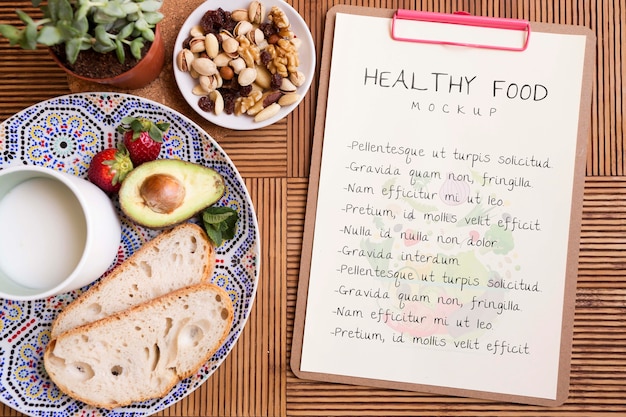 HEALTHY FOOD
MOCKUP
-Pellentesque ut turpis solicitud
-Gravida quam non, fringilla
-Nam efficitur mi ut leo
-Pretium, id mollis velit efficit
-Nulla id nulla non dolor
-Gravida interdum
-Pellentesque ut turpis solicitud.
-Gravida quam non, fringilla
-Nam efficitur mi ut leo
-Pretium, id mollis velit efficit.